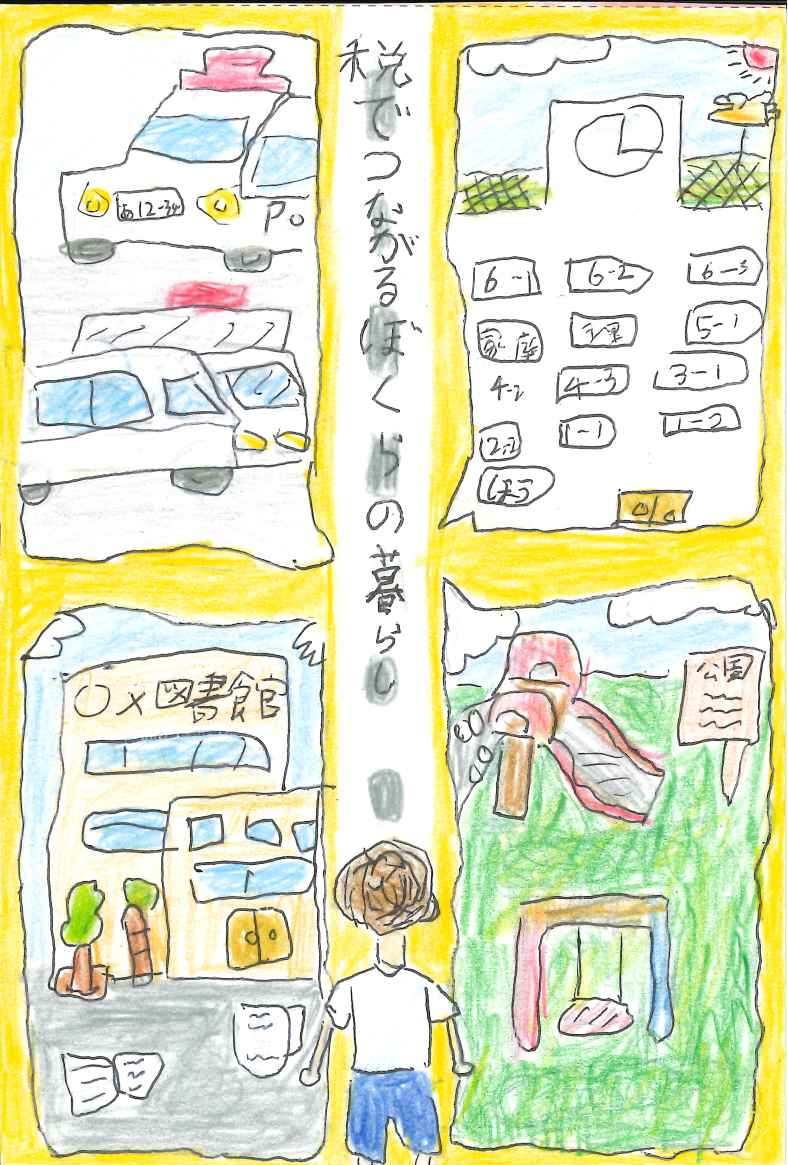 税でつながるぼくらの暮らし
あ12-34
Po
6-1 6-2 6-3
家庭 理 5-1
4-2 4-3 3-1
2-2 1-1 1-2
○×図書館
公園